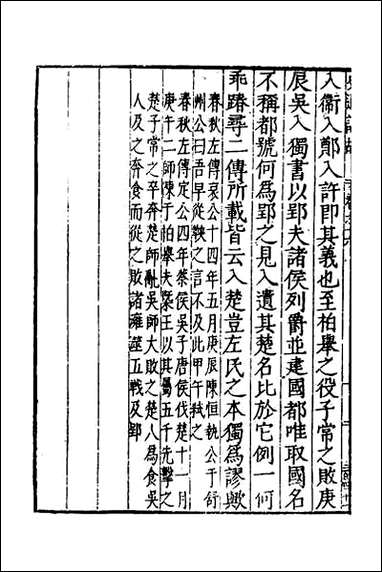 入衞入鄭入許即其義也至柏舉之役子常之敗庚
辰吳入獨書以郢夫諸侯列爵並建國都唯取國名
不稱都號何為郢之見入遺其楚名比於它例一何
乖踳尋二傳所載皆云入楚豈左氏之本獨為謬歟
春秋左傳哀公十四年五月庚辰陳恒執公于舒
州公曰吾早從鞅之言不及此甲午弒之
春秋左傳定公四年蔡侯吳子唐侯伐楚十一月
庚午二師陳于柏舉夫槩王以其屬五千先擊之
楚子常之卒奔楚師亂吳師大敗之楚人為食吳
人及之奔食而從之敗諸雍澨五戰及郢